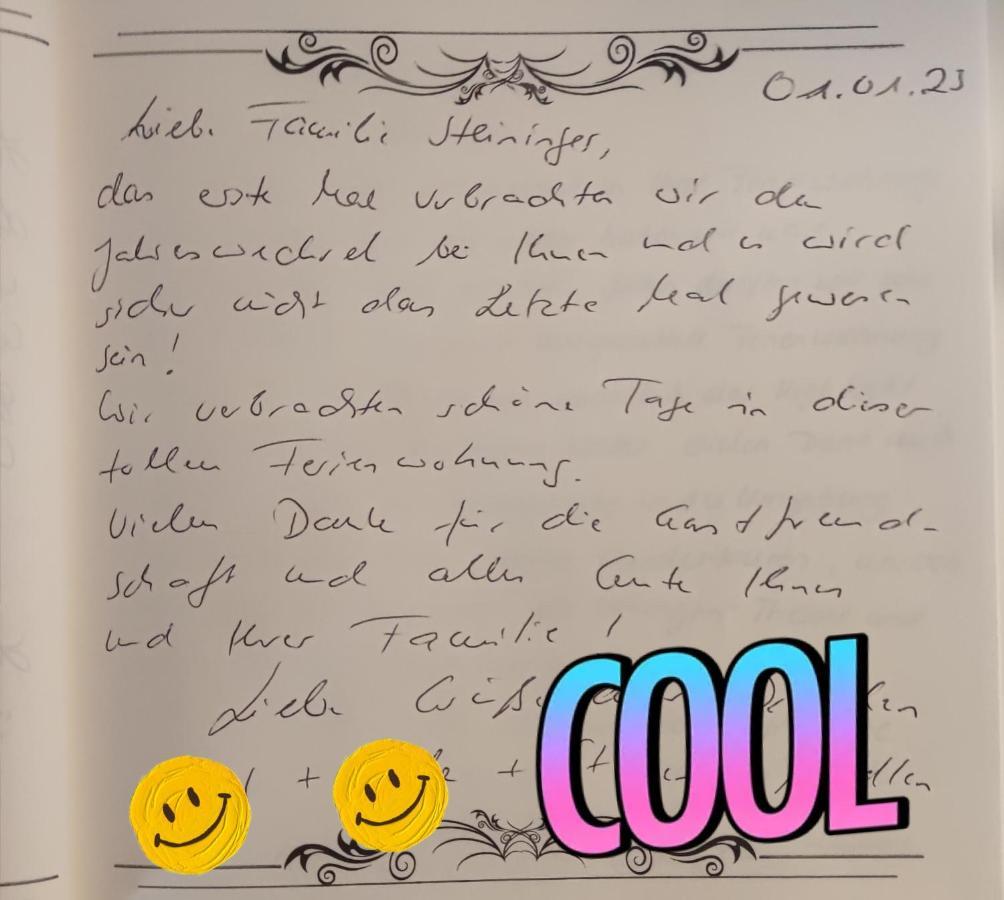 01.01.23
Liebe Familie Steininger,
das erste Mal verbrachten wir den
Jahreswechsel bei Ihnen und es wird
sicher nicht das Letzte Mal gewesen
sein!
Wir verbrachten schöne Tage in dieser
tollen Ferienwohnung.
Vielen Dank für die Gastfreund-
schaft und alles Gute Ihnen
und Ihrer Familie!
Liebe Grüße
+ +
COOL